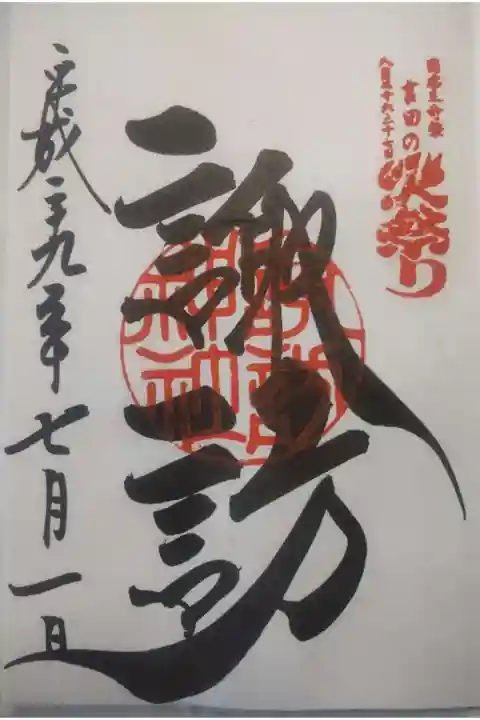 日本三奇祭
吉田の火祭り
八月二十六二十七日
諏訪
諏訪神社
平成二十九年七月一日